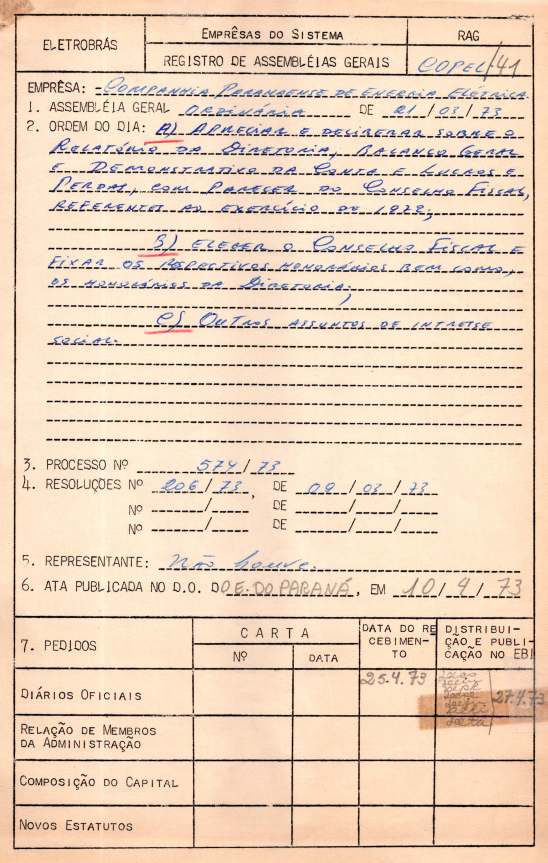 ELETROBRÁS
EMPRÊSAS DO SISTEMA
REGISTRO DE ASSEMBLÉIAS GERAIS
RAG
COPEL/41
EMPRÊSA: COMPANHIA PARANAENSE DE ENERGIA ELÉTRICA
1. ASSEMBLÉIA GERAL ORDINÁRIA DE 21/03/73
2. ORDEM DO DIA: A) APRECIAR E DELIBERAR SOBRE O
RELATÓRIO DA DIRETORIA, BALANÇO GERAL
E DEMONSTRATIVO DA CONTA E LUCROS E
PERDAS, COM PARECER DO CONSELHO FISCAL,
REFERENTES AO EXERCÍCIO DE 1972;
B) ELEGER O CONSELHO FISCAL E
FIXAR OS RESPECTIVOS HONORÁRIOS BEM COMO,
OS HONORÁRIOS DA DIRETORIA;
C) OUTROS ASSUNTOS DE INTRESSE
SOCIAL.
3. PROCESSO Nº 574/73
4. RESOLUÇÕES Nº 206/73, DE 09/03/73
Nº / DE / /
Nº / DE / /
5. REPRESENTANTE: Não houve.
6. ATA PUBLICADA NO D.O. DO E. DO PARANÁ, EM 10/4/73
7. PEDIDOS
CARTA
Nº
DATA
DATA DO RE
CEBIMEN-
TO
DISTRIBUI-
ÇÃO E PUBLI-
CAÇÃO NO EBI
DIÁRIOS OFICIAIS
25.4.73
27.4.73
RELAÇÃO DE MEMBROS
DA ADMINISTRAÇÃO
COMPOSIÇÃO DO CAPITAL
NOVOS ESTATUTOS